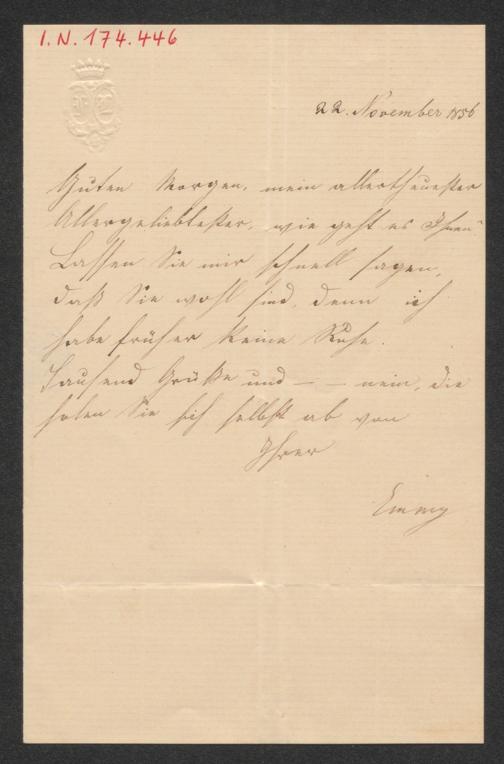 I.N. 174.446
22. November 1856
Guten Morgen, mein allertheuerster
Allergeliebtester, wie geht es Ihnen?
Lassen Sie mir schnell sagen,
daß Sie wohl sind, denn ich
habe früher keine Ruhe.
Tausend Grüße und – – nein, die
holen Sie sich selbst ab von
Ihrer
Emmy